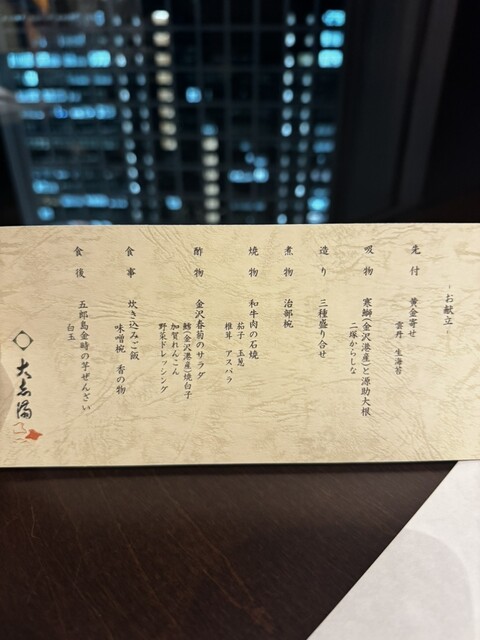 -お献立-
先付 黄金寄せ
雲丹 生海苔
吸物 寒鰤(金沢港産)と源助大根
二塚からしな
造り 三種盛り合せ
煮物 治部椀
焼物 和牛肉の石焼
茄子 玉葱
椎茸 アスパラ
酢物 金沢春菊のサラダ
鱈(金沢港産)焼白子
加賀れんこん
野菜ドレッシング
食事 炊き込みご飯
味噌椀 香の物
食後 五郎島金時の芋ぜんざい
白玉
大志満